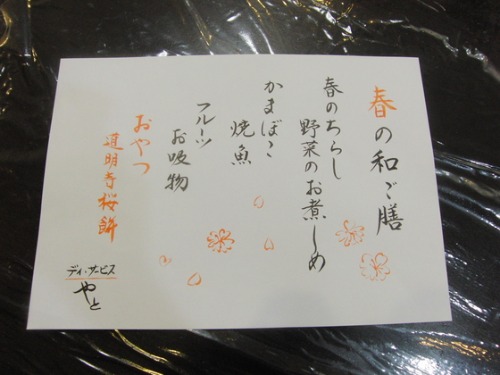 春の和ご膳
春のちらし
野菜のお煮しめ
かまぼこ
焼魚
フルーツ
お吸物
おやつ
道明寺桜餅
デイ・サービス
やと